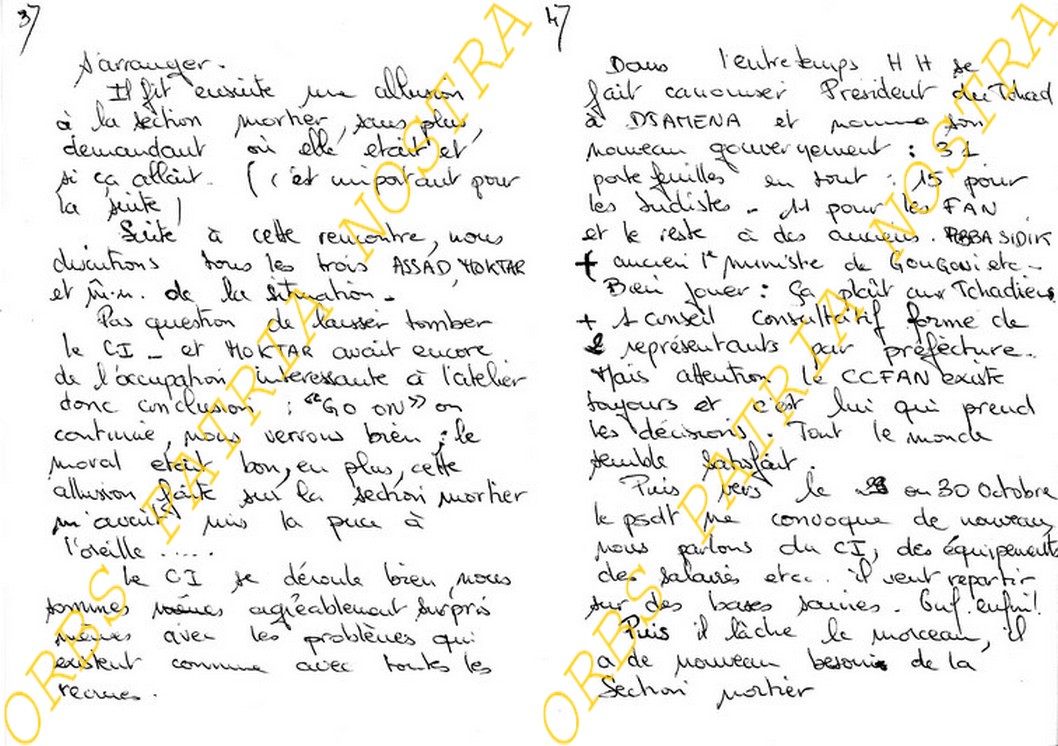 3/
s'arranger.
Il fit ensuite une allusion
à la section mortier, sans plus,
demandant où elle etait et
si ça allait. (c'est important pour
la suite)
Suite à cette rencontre, nous
discutions tous les trois ASSAD, MOKTAR
et m.m. de la situation.
Pas question de laisser tomber
le CI _ et MOKTAR avait encore
de l'occupation interessante à l'atelier
donc conclusion : "GO ON" on
continue, nous verrons bien ; le
moral etait bon, en plus, cette
allusion faite sur la section mortier
m'avait mis la puce à
l'oreille .....
Le CI se déroule bien, nous
sommes mêmes agréablement surpris
mêmes avec les problèmes qui
existent comme avec toutes les
recrues.
4/
Dans l'entretemps HH se
fait canoniser Président du Tchad
à DJAMENA et nomme son
nouveau gouvernement : 31
portefeuilles en tout : 15 pour
les Sudistes _ 11 pour les FAN
et le reste à des anciens. ABBA SIDIK
+ ancien 1er ministre de GOUGONI etc _
Bien jouer : ça plaît aux Tchadiens
+ 1 conseil consultatif formé de
2 représentants par préfecture.
Mais attention le CCFAN existe
toujours et c'est lui qui prend
les décisions. Tout le monde
semble satisfait.
Puis vers le 28 ou 30 Octobre
le psdt me convoque de nouveau,
nous parlons du CI, des équipements
des salaires etc.. il veut repartir
sur des bases saines. Ouf. enfin!
Puis il lâche le morceau, il
a de nouveau besoin de la
Section mortier
ORBS PATRIA NOSTRA
ORBS PATRIA NOSTRA